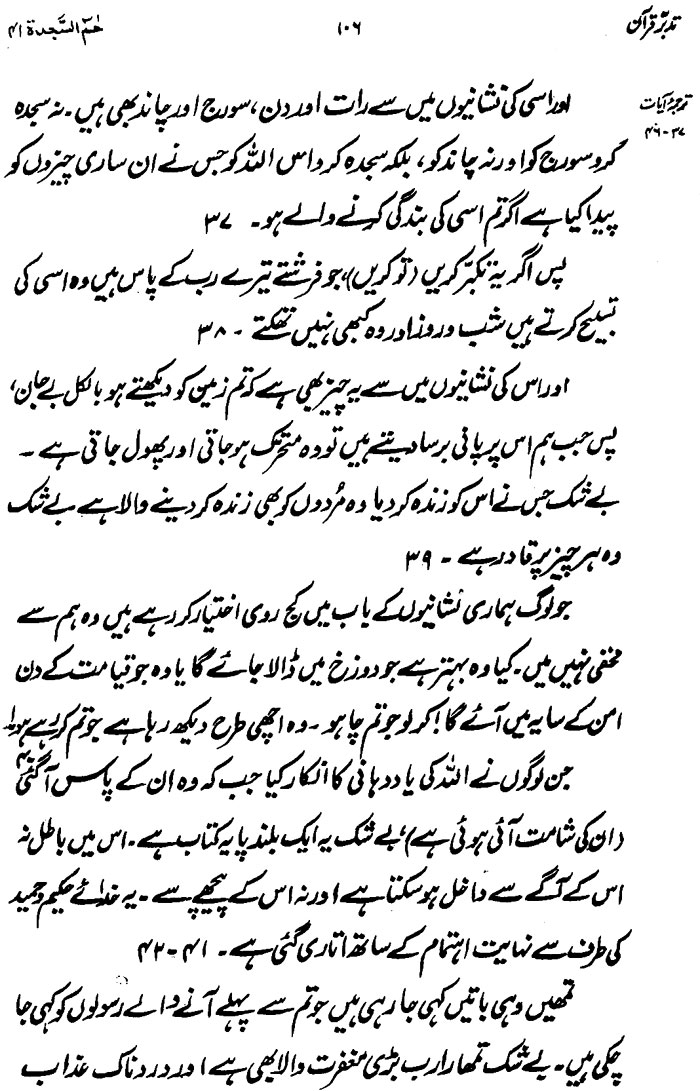 تدبرِ قرآن ۱۰۶ حٰمٓ السَّجدۃ ۴۱
ترجمۂ آیات
۳۷-۴۶
اور اسی کی نشانیوں میں سے رات اور دن، سورج اور چاند بھی ہیں۔ نہ سجدہ
کرو سورج کو اور نہ چاند کو، بلکہ سجدہ کرو اس اللہ کو جس نے ان ساری چیزوں کو
پیدا کیا ہے اگر تم اسی کی بندگی کرنے والے ہو۔ ۳۷
پس اگر یہ تکبّر کریں (تو کریں)، جو فرشتے تیرے رب کے پاس ہیں وہ اسی کی
تسبیح کرتے ہیں شب و روز اور وہ کبھی نہیں تھکتے ۔ ۳۸
اور اس کی نشانیوں میں سے یہ چیز بھی ہے کہ تم زمین کو دیکھتے ہو بالکل بے جان،
پس جب ہم اس پر پانی برسا دیتے ہیں تو وہ متحرک ہو جاتی اور پھول جاتی ہے ۔
بے شک جس نے اس کو زندہ کر دیا وہ مُردوں کو بھی زندہ کر دینے والا ہے۔ بے شک
وہ ہر چیز پر قادر ہے ۔ ۳۹
جو لوگ ہماری نشانیوں کے باب میں کج روی اختیار کر رہے ہیں وہ ہم سے
مخفی نہیں ہیں۔ کیا وہ بہتر ہے جو دوزخ میں ڈالا جائے گا یا وہ جو قیامت کے دن
امن کے سایہ میں آئے گا! کر لو جو تم چاہو ۔ وہ اچھی طرح دیکھ رہا ہے جو تم کر رہے ہو۔ ۴۰
جن لوگوں نے اللہ کی یاددہانی کا انکار کیا جب کہ وہ ان کے پاس آگئی
(ان کی شامت آئی ہوئی ہے)، بے شک یہ ایک بلند پایہ کتاب ہے۔ اس میں باطل نہ
اس کے آگے سے داخل ہو سکتا ہے اور نہ اس کے پیچھے سے ۔ یہ خدائے حکیم و حمید
کی طرف سے نہایت اہتمام کے ساتھ اتاری گئی ہے۔ ۴۱-۴۲
تمھیں وہی باتیں کہی جا رہی ہیں جو تم سے پہلے آنے والے رسولوں کو کہی جا
چکی ہیں۔ بے شک تمھارا رب بڑی مغفرت والا بھی ہے اور دردناک عذاب